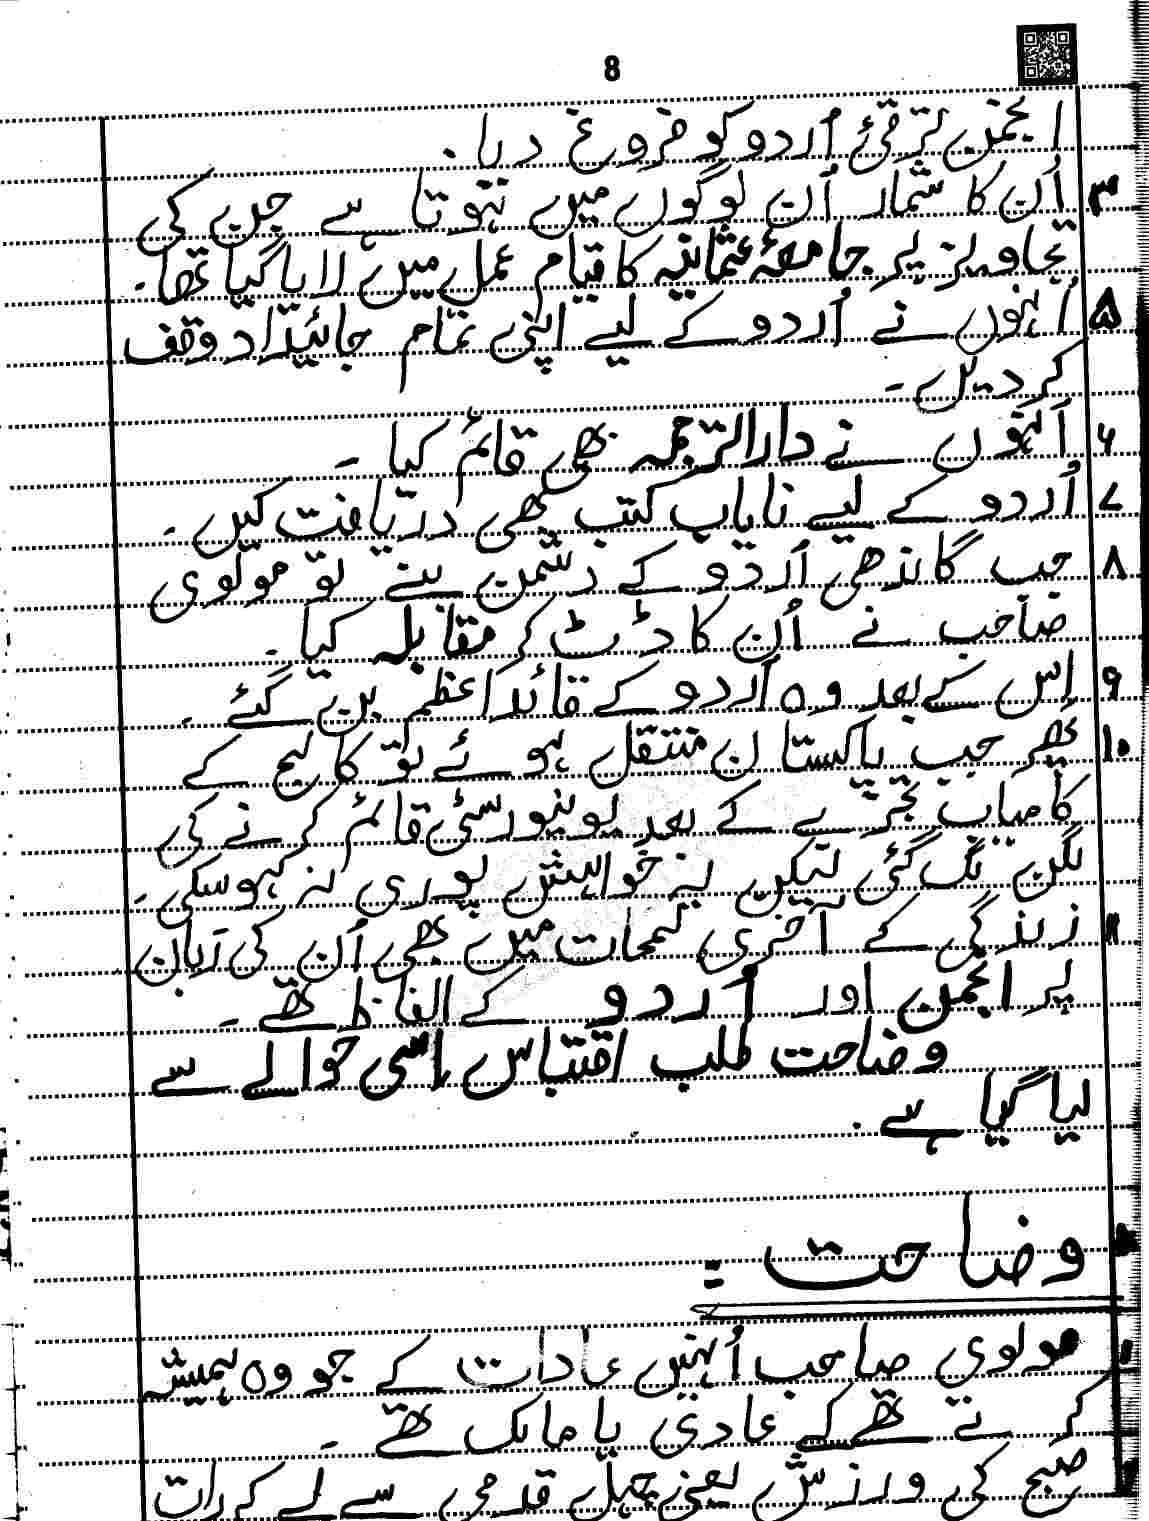 8
انجمن ترقیٔ اُردو کو فروغ دیا.
۳ اُن کا شمار اُن لوگوں میں ہوتا ہے جن کی
تجاویز پر جامعۂ عثمانیہ کا قیام عمل میں لایا گیا تھا۔
۵ اُنہوں نے اُردو کے لیے اپنی تمام جائیداد وقف
کر دیں۔
۶ اُنہوں نے دارالترجمہ بھی قائم کیا ۔
۷ اُردو کے لیے نایاب کتب بھی دریافت کیں۔
۸ جب گاندھی اُردو کے دشمن بنے تو مولوی
صاحب نے اُن کا ڈٹ کر مقابلہ کیا ۔
۹ اِس کے بعد وہ اُردو کے قائد اعظم بن گئے ۔
۱۰ پھر جب پاکستان منتقل ہوئے تو کالج کے
کامیاب تجربے کے بعد یونیورسٹی قائم کرنے کی
لگن لگ گئی لیکن یہ خواہش پوری نہ ہوسکی۔
۱۱ زندگی کے آخری لمحات میں بھی اُن کی زبان
پر انجمن اور اُردو کے الفاظ تھے ۔
وضاحت طلب اقتباس اسی حوالے سے
لیا گیا ہے .
وضاحت :
مولوی صاحب اُنہیں عادات کے جو وہ ہمیشہ
کرتے تھے کے عادی یا مالک تھے ۔
صبح کی ورزش یعنی چہل قدمی سے لے کر رات